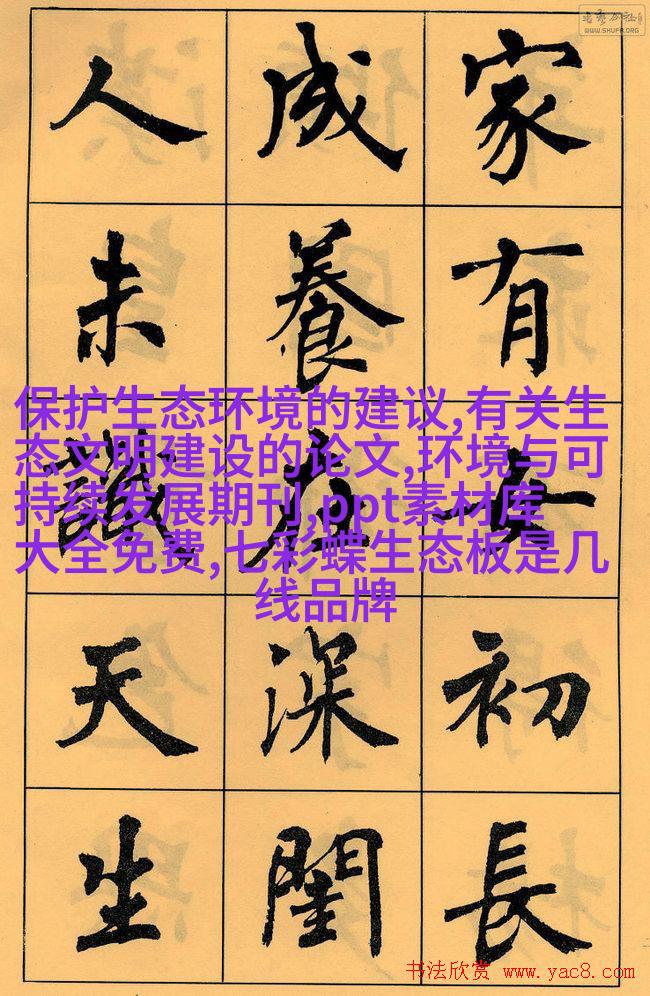 书艺公社
WWW.SHUFA.ORG
家有女初長
成養在深閨
人未識天生
保护生态环境的建议,有关生
态文明建设的论文,环境与可
持续发展期刊,ppt素材库
大全免费,七彩蝶生态板是几
线品牌
书法欣赏 www.yac8.com